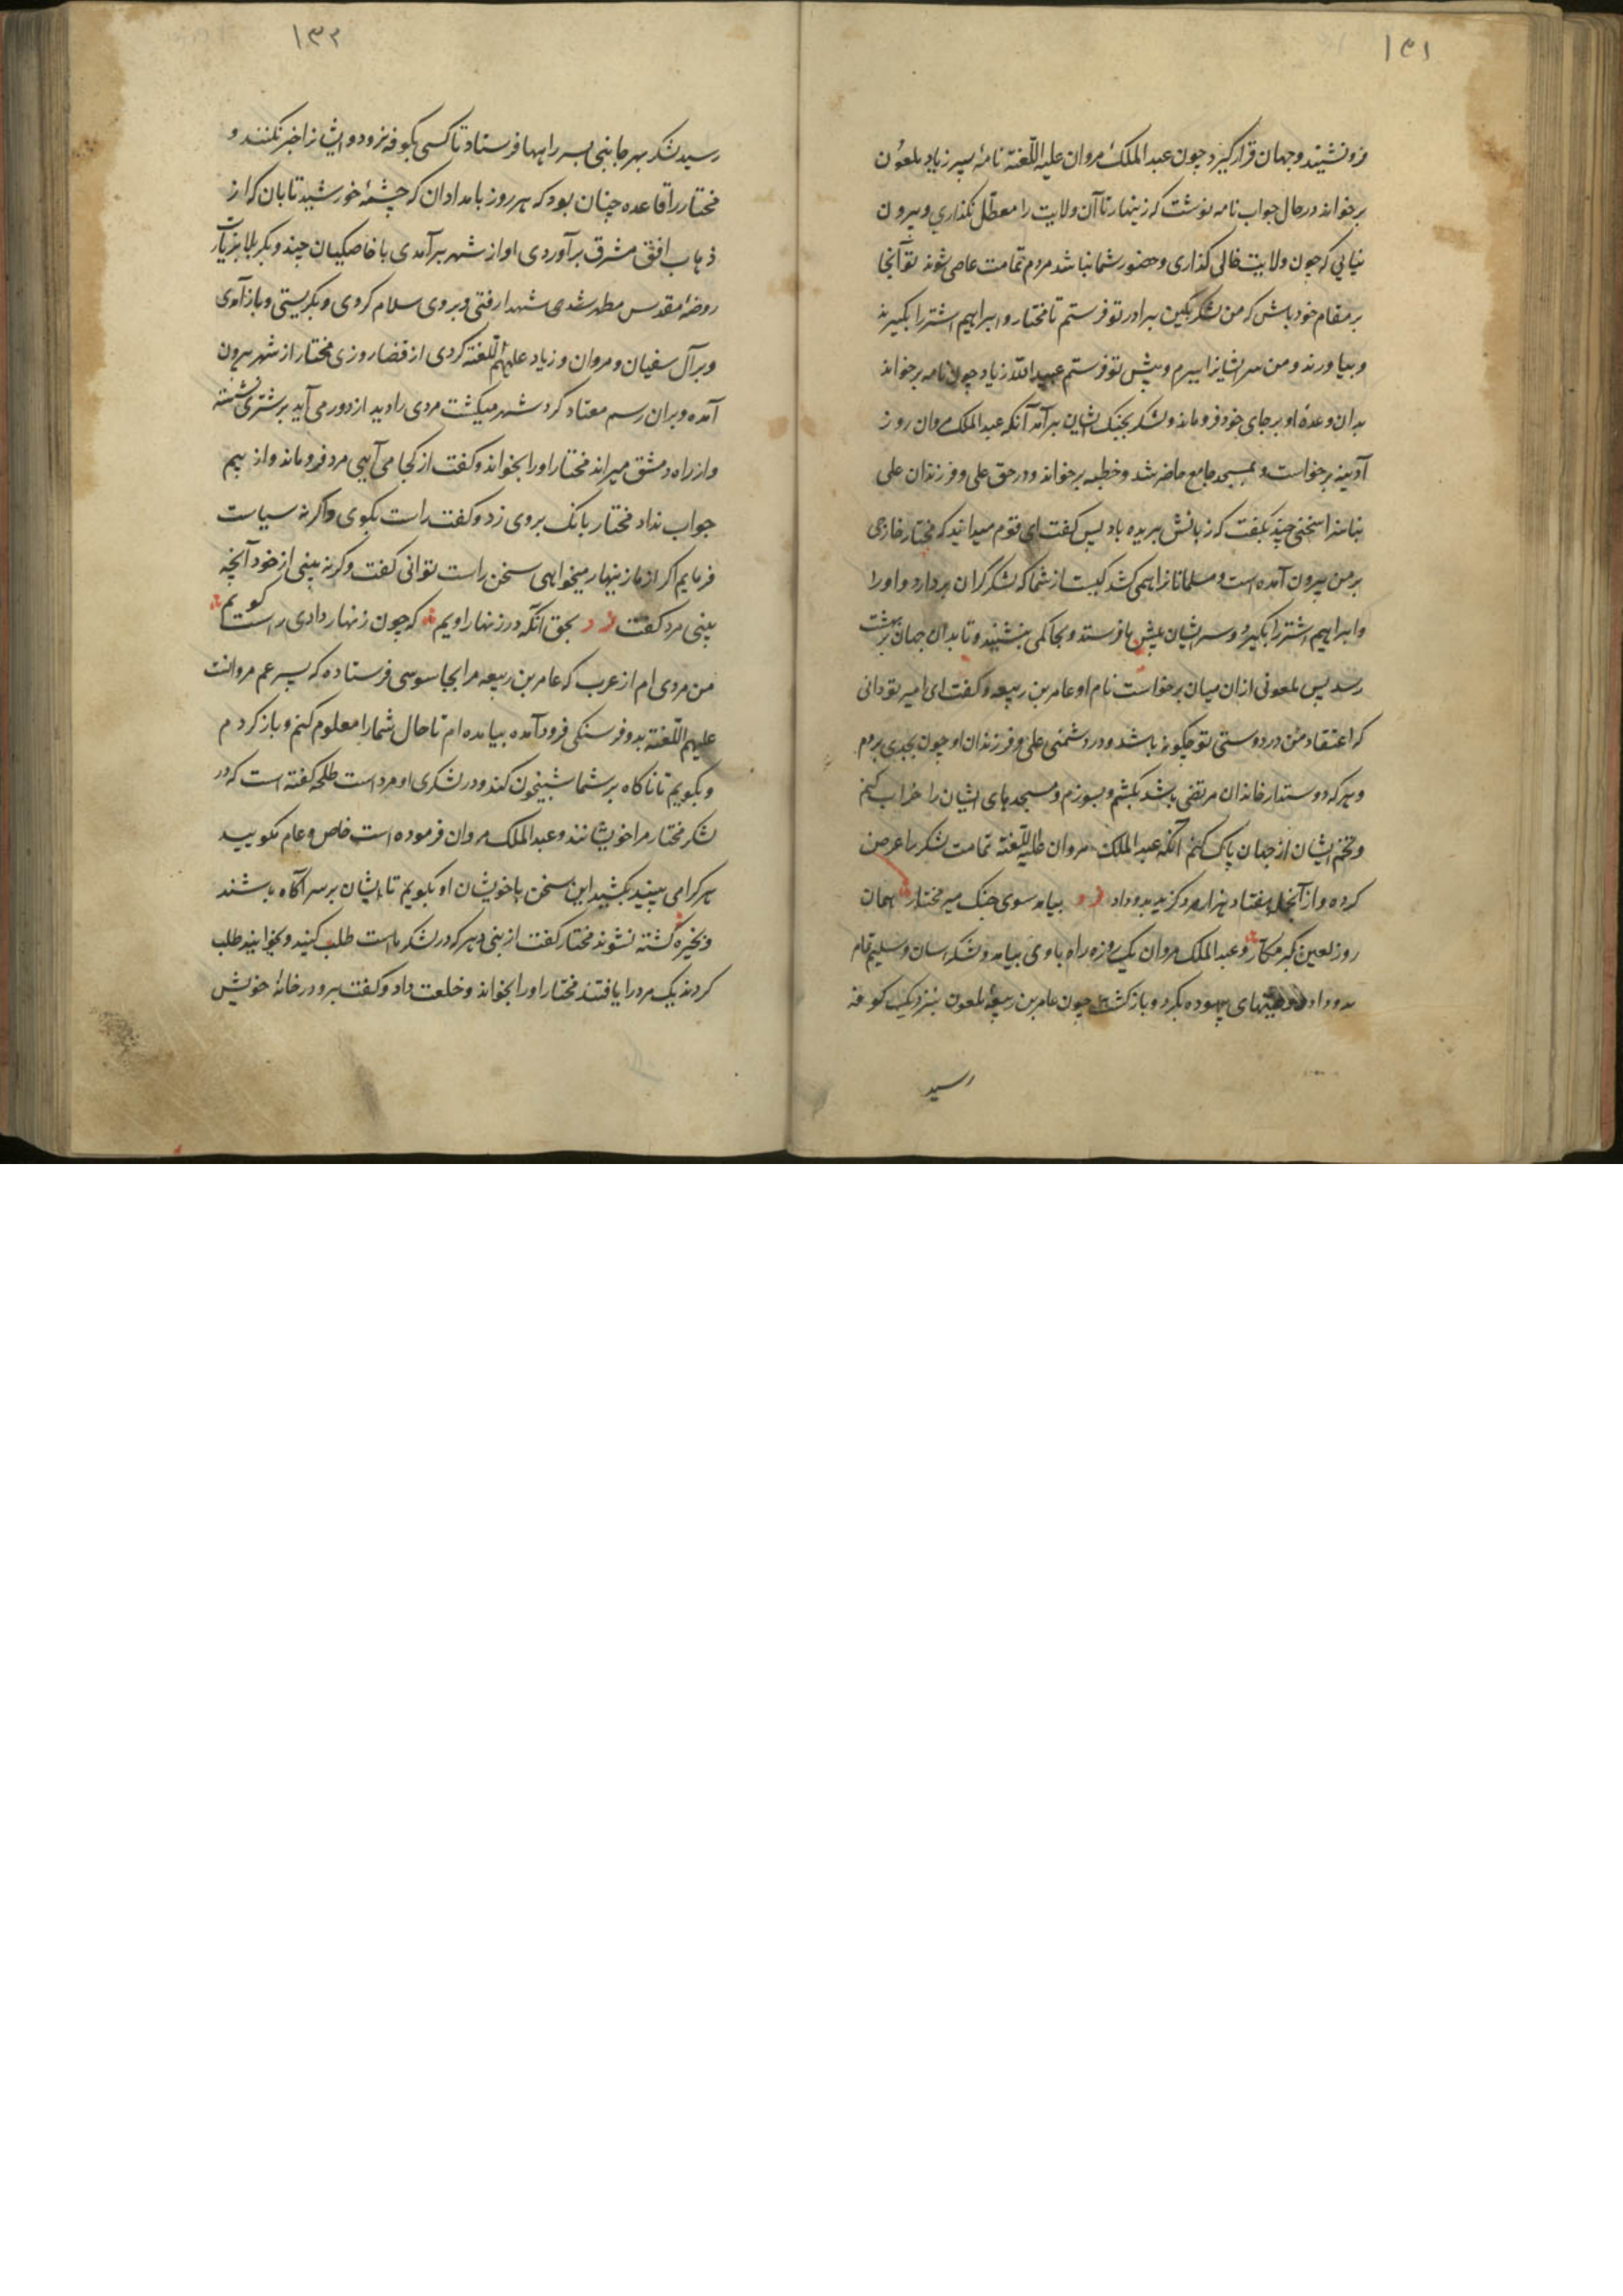 ۱۳۱
فرو نشیند و جهان قرار گیرد چون عبد الملک مروان علیه اللّعنة نامهٔ پسر زیاد ملعون
برخواند در حال جواب نامه نوشت که زینهار تا آن ولایت را معطّل نگذاری و بیرون
نیایی که چون ولایت خالی گذاری و حضور شما نباشد مردم تمامت عاصی شوند تو آنجا
بر مقام خود باش که من لشکر بکین برادر تو فرستم تا مختار و ابراهیم اشتر را بکیرند
و بیاورند و من سر ایشانرا ببرم و پیش تو فرستم عبید اللّه زیاد چون نامه برخواند
بدان وعدهٔ او بر جای خود فرو ماند و لشکر بجنک ایشان برآمد آنکه عبد الملک مروان روز
آدینه برخواست و بمسجد جامع حاضر شد و خطبه برخواند و در حق علی و فرزندان علی
بناسزا سخنی چند بگفت که زبانش بریده باد پس گفت ای قوم میدانید که مختار خارجی
بر من بیرون آمده است و مسلمانانرا همی کشد کیست از شما که لشکر گران بردارد و او را
و ابراهیم اشتر را بکیرد و سر ایشان پیش ما فرستد و بحاکمی بنشیند و تا بدان جهان بهشت
رسد پس ملعونی از ان میان برخواست نام او عامر بن ربیعه و گفت ای امیر تو دانی
که اعتقاد من در دوستی تو چکونه باشد و در دشمنی علی و فرزندان او چون بجدی بروم
و هر که دوستدار خاندان مرتضی باشد بکشم و بسوزم و مسجدهای ایشان را خراب کنم
و تخم ایشان از جهان پاک کنم آنکه عبد الملک مروان علیه اللّعنة تمامت لشکر را عرض
کرده و از آنجمله هفتاد هزار مرد گزیده بدو داد فرد بیامد سوی جنک میر مختار همان
روز لعین گبر مکار و عبد الملک مروان یک روزه راه با وی بیامد و لشکر سان و سلیم تمام
بدو داد و وصیتهای بیهوده بکرد و بازکشت چون عامر بن ربیعهٔ ملعون بنزدیک کوفه
رسید
۱۳۲
رسید لشکر بهر جانبی بسر راهها فرستاد تا کسی بکوفه نرود و ایشانرا خبر نکنند و
مختار را قاعده چنان بود که هر روز بامدادان که چشمهٔ خورشید تابان که از
ذهاب افق مشرق برآوردی او از شهر برآمدی با خاصیکیان چند و بکربلا بزیارت
روضهٔ مقدس مطهر شدی شهدا رفتی و بر وی سلام کردی و بکریستی و باز آمدی
و بر آل سفیان و مروان و زیاد علیهم اللّعنة کردی از قضا روزی مختار از شهر بیرون
آمده و بران رسم معتاد گرد شهر میکشت مردی را دید از دور می آید بر شتری نشسته
و از راه دمشق میراند مختار او را بخواند و گفت از کجا می آیی مرد فرو ماند و از بیم
جواب نداد مختار بانک بر وی زد و گفت راست بکوی و اکر نه سیاست
فرمایم اکر از ما زینهار میخواهی سخن راست توانی گفت و کرنه بینی از خود آنچه
بینی مرد گفت فرد بحق آنکه در زنهار اویم که چون زنهار دادی راست گویم
من مردی ام از عرب که عامر بن ربیعه مرا بجاسوسی فرستاده که پسر عم مروانست
علیهم اللّعنة بدو فرسنکی فرود آمده بیامده ام تا حال شما را معلوم کنم و باز کردم
و بکویم تا ناکاه بر شما شبیخون کند و در لشکری او مرد است طلحه گفته است که در
لشکر مختار مرا خویشانند و عبد الملک مروان فرموده است خاص و عام نکویید
هر کرا می بینید بکشید این سخن با خویشان او بکویم تا ایشان بر سر آگاه باشند
و بخیره کشته نشوند مختار گفت از بنی دهر که در لشکر ما است طلب کنید و بخوانید طلب
کردند یک مرد را یافتند مختار او را بخواند و خلعت داد و گفت برو در خانهٔ خویش